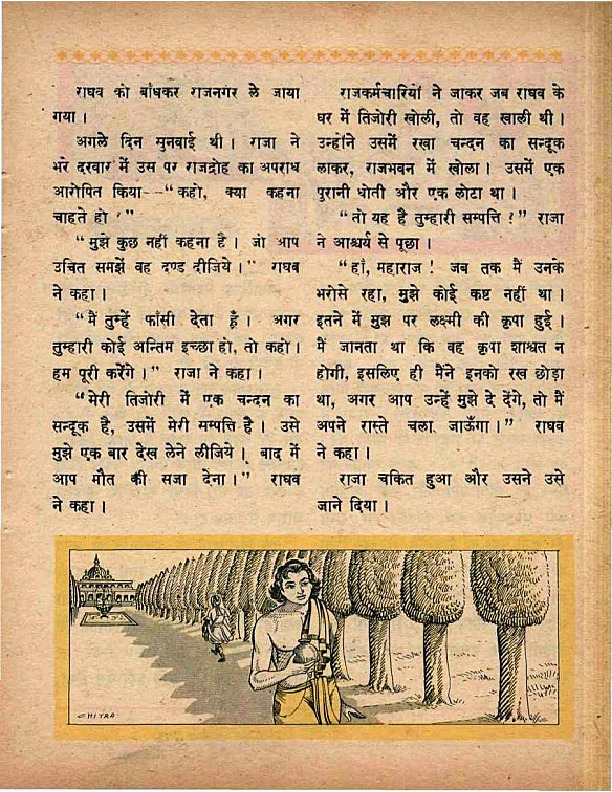 राघव को बांधकर राजनगर ले जाया
गया ।
अगले दिन सुनवाई थी । राजा ने
भरे दरबार में उस पर राजद्रोह का अपराध
आरोपित किया--“कहो, क्या कहना
चाहते हो ?”
“मुझे कुछ नहीं कहना है । जो आप
उचित समझें वह दण्ड दीजिये ।” राघव
ने कहा ।
“मैं तुम्हें फांसी देता हूँ । अगर
तुम्हारी कोई अन्तिम इच्छा हो, तो कहो ।
हम पूरी करेंगे ।” राजा ने कहा ।
“मेरी तिजोरी में एक चन्दन का
सन्दूक है, उसमें मेरी सम्पत्ति है । उसे
मुझे एक बार देख लेने लीजिये । बाद में
आप मौत की सजा देना ।” राघव
ने कहा ।
राजकर्मचारियों ने जाकर जब राघव के
घर में तिजोरी खोली, तो वह खाली थी ।
उन्होंने उसमें रखा चन्दन का सन्दूक
लाकर, राजभवन में खोला । उसमें एक
पुरानी धोती और एक लोटा था ।
“तो यह है तुम्हारी सम्पत्ति ?” राजा
ने आश्चर्य से पूछा ।
“हाँ, महाराज ! जब तक मैं उनके
भरोसे रहा, मुझे कोई कष्ट नहीं था ।
इतने में मुझ पर लक्ष्मी की कृपा हुई ।
मैं जानता था कि वह कृपा शाश्वत न
होगी, इसलिए ही मैंने इनको रख छोड़ा
था, अगर आप उन्हें मुझे दे देंगे, तो मैं
अपने रास्ते चला जाऊँगा ।” राघव
ने कहा ।
राजा चकित हुआ और उसने उसे
जाने दिया ।
CHITRA